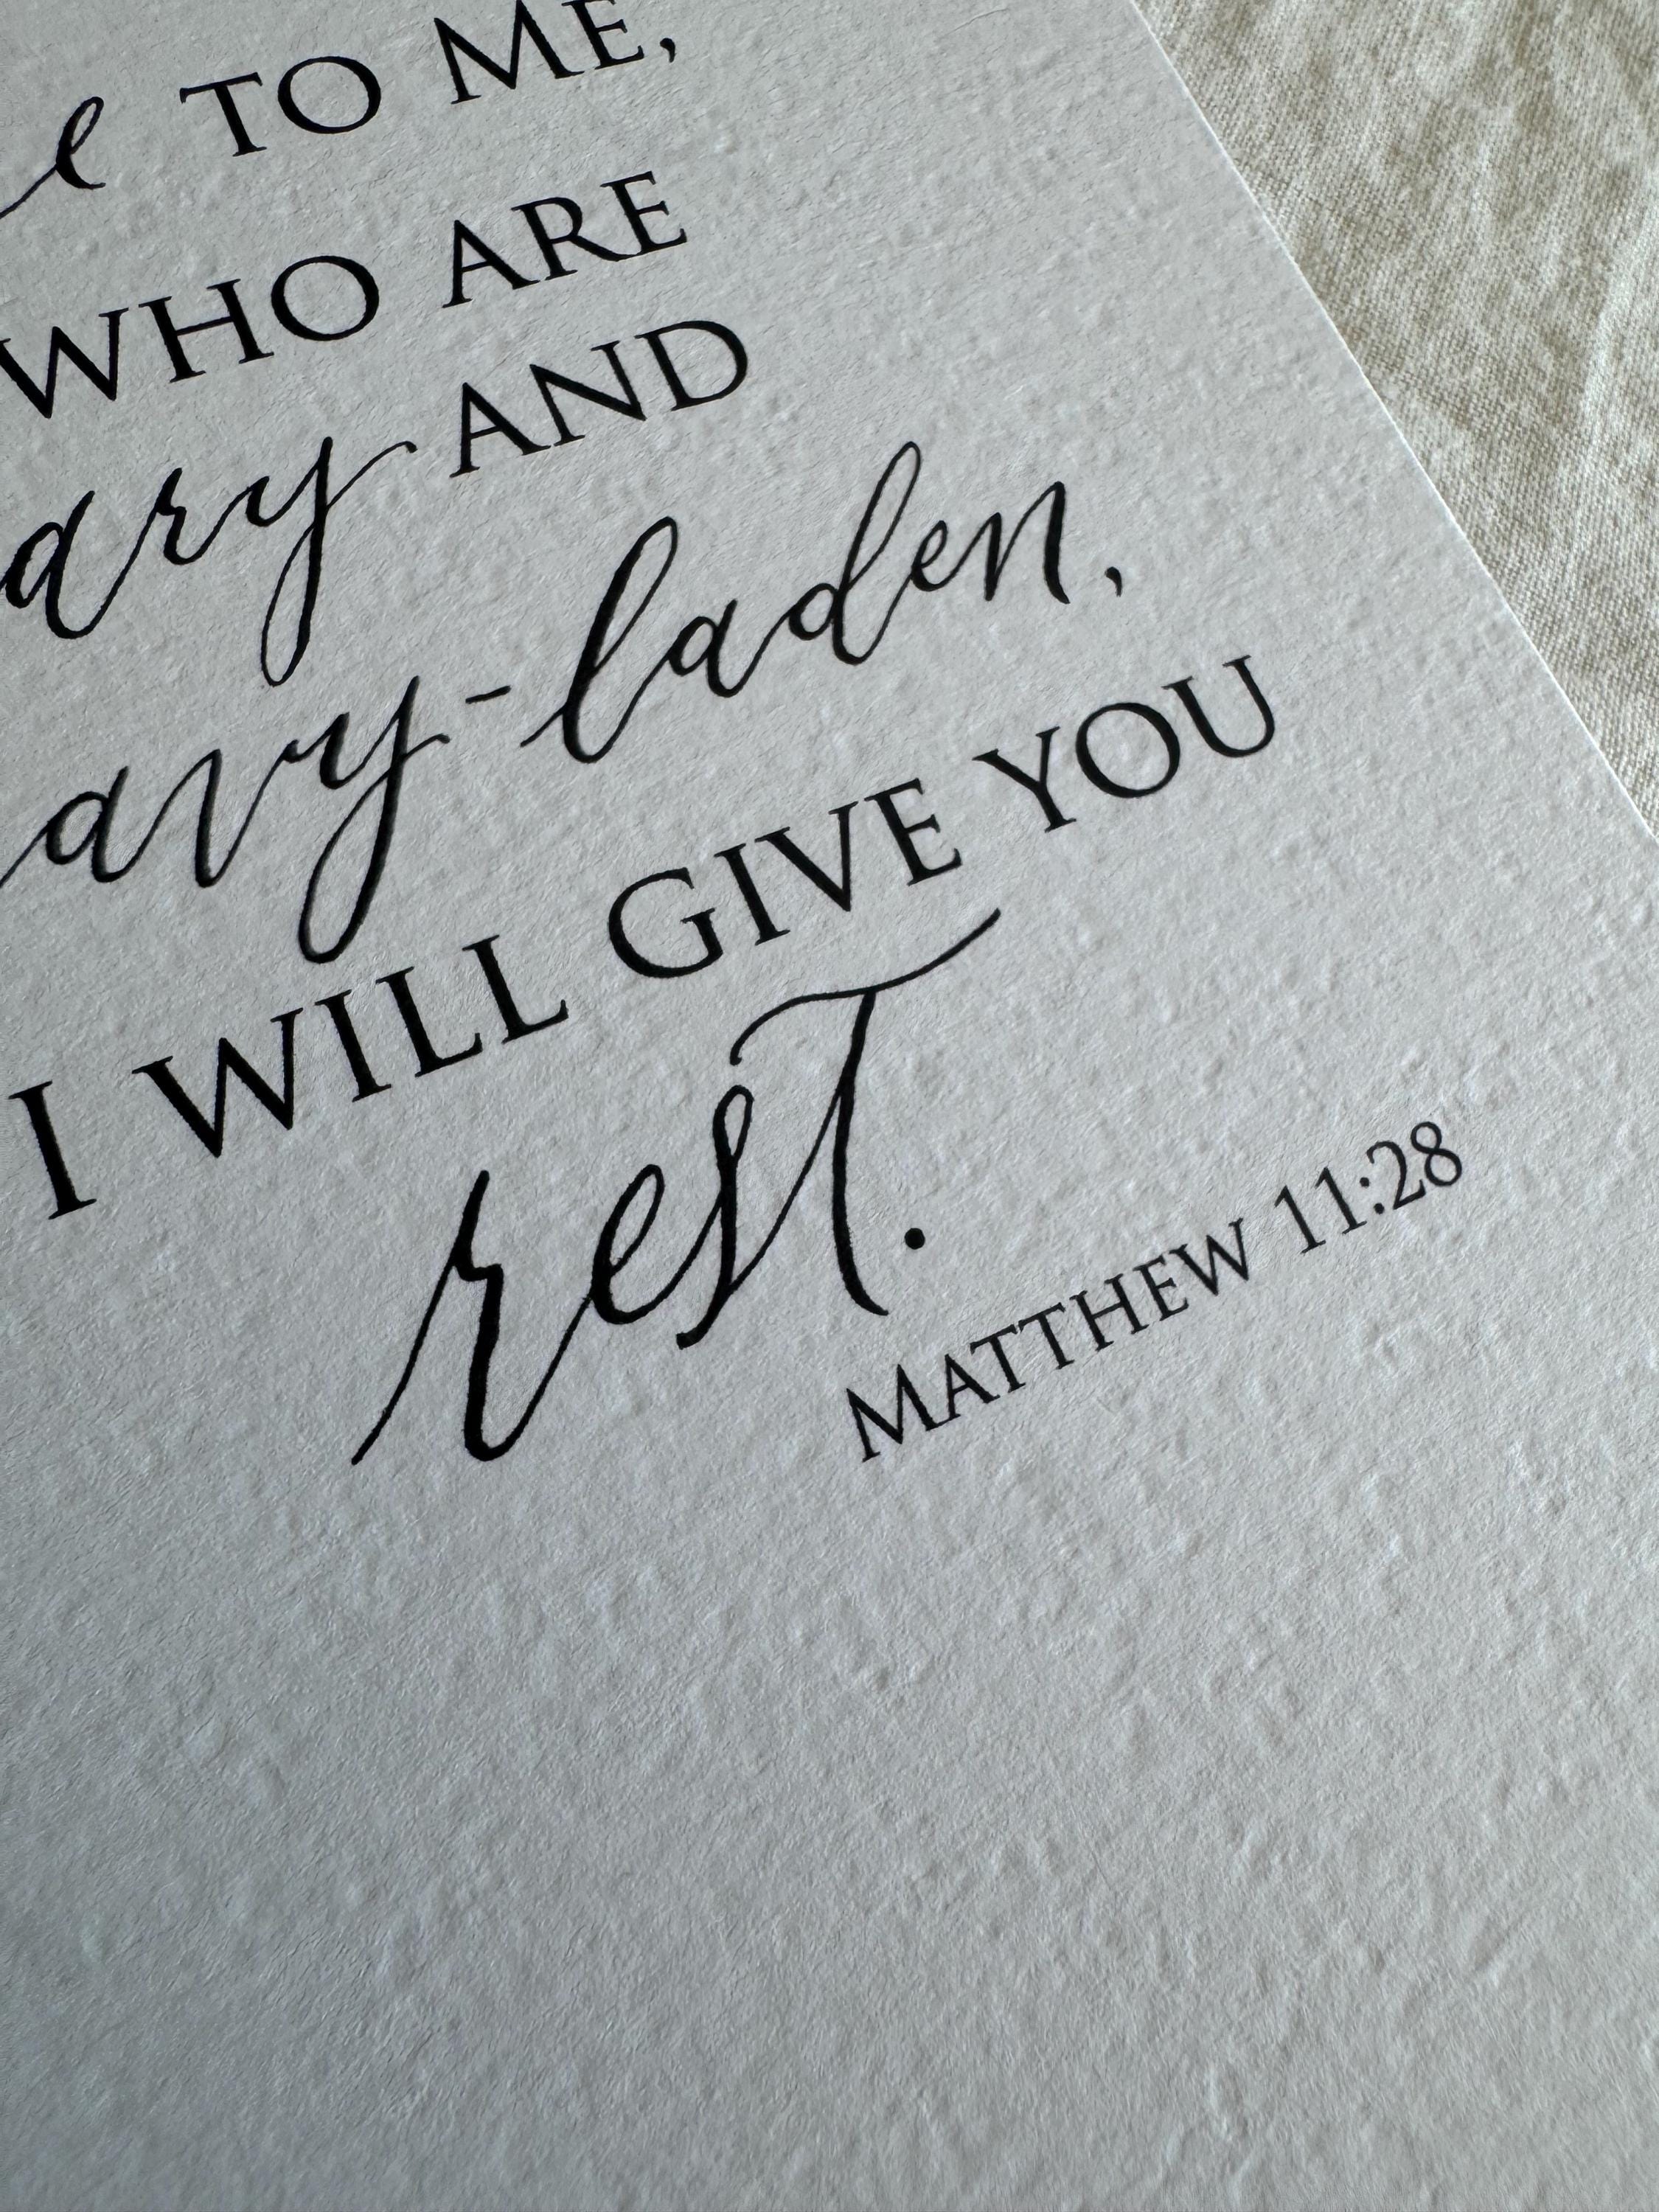 e TO ME,
WHO ARE
ary AND
avy-laden,
I WILL GIVE YOU
rest.
MATTHEW 11:28